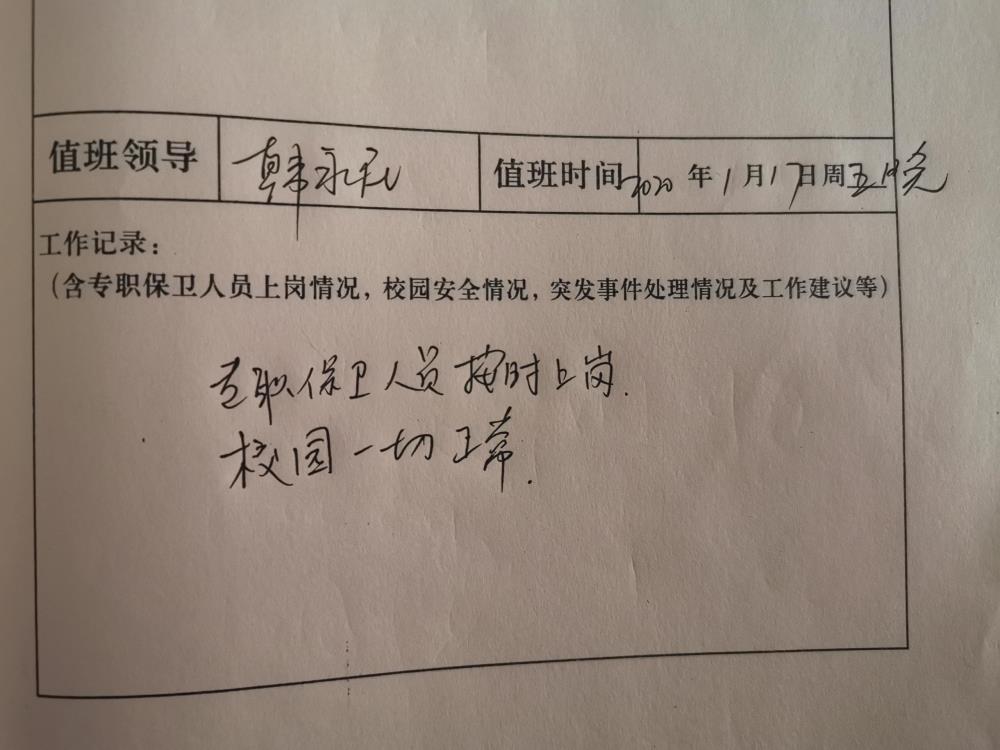 值班领导 韩永 值班时间 2020年1月17日周五晚
工作记录：
（含专职保卫人员上岗情况，校园安全情况，突发事件处理情况及工作建议等）
专职保卫人员按时上岗.
校园一切正常.